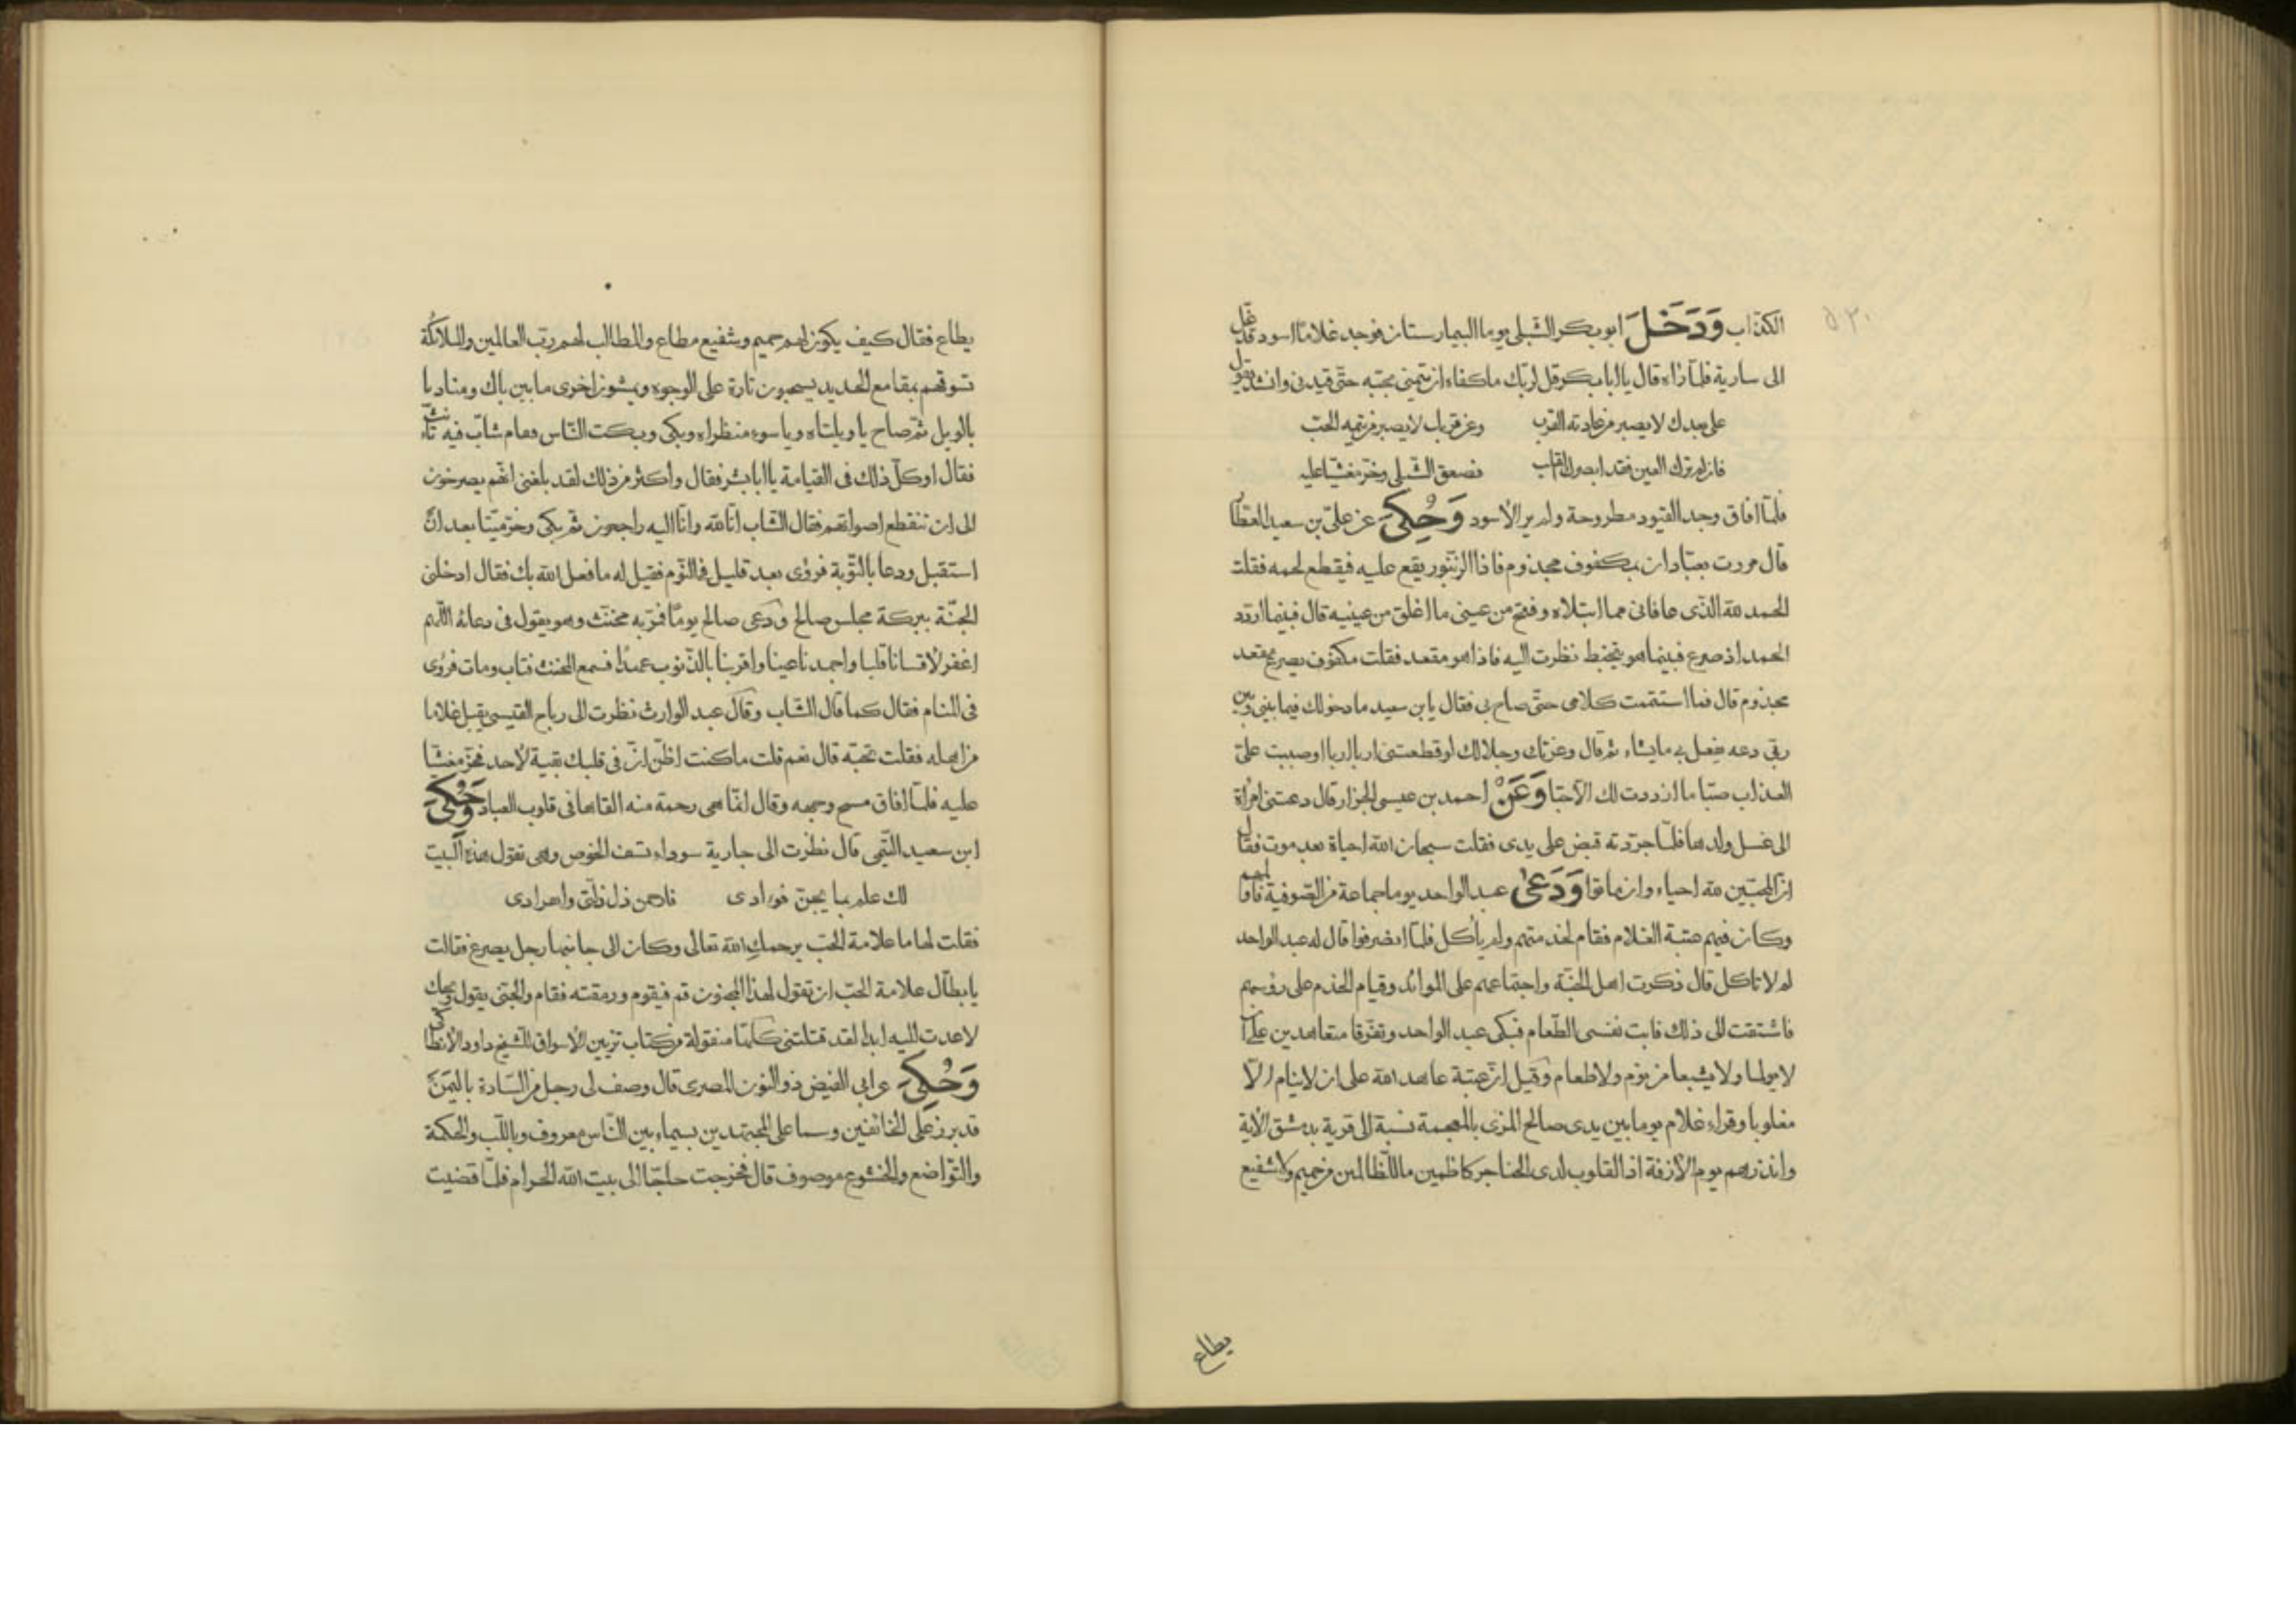 ٥٣٠
الكذاب وَدَخَلَ ابو بكر الشبلى يوما البيمارستان فوجد غلامًا اسود قد غل
الى سارية فلمّا رآه قال يا ابا بكر قل لربّك ما كفاه ان تيمنى بحبّه حتّى قيدنى وانشد يقول
على بعدك لا يصبر من عادته القرب وعن قربك لا يصبر من تيمه الحبّ
فان لم ترك العين فقد ابصرك القلب فصعق الشّبلى وخرّ مغشيّا عليه
فلمّا افاق وجد القيود مطروحة ولم ير الأسود وَحُكِيَ عن علىّ بن سعيد العطّا
قال مررت بعبّادان بمكفوف مجذوم فاذا الزنبور يقع عليه فيقطع لحمه فقلت
الحمد لله الّذى عافانى مما ابتلاه وفتح من عينى ما اغلق من عينيه قال فبينما اردّد
الحمد اذ صرع فبينما هو يتخبط نظرت اليه فاذا هو مقعد فقلت مكفوف يصرع مقعد
مجذوم قال فما استتممت كلامى حتّى صاح بى فقال يا بن سعيد ما دخولك فيما بينى وبين
ربّى دعه يفعل بى ما يشاء ثم قال وعزتك وجلالك لو قطعتنى اربا اربا او صببت علىّ
العذاب صبّا ما ازددت لك الّا حبّا وَعَنْ احمد بن عيسى الجزار قال دعتنى امرأة
الى غسل ولدها فلمّا جرّدته قبض على يدى فقلت سبحان الله احياة بعد موت فقال
انّ المحبّين لله احياء وان ماتوا وَدَعىٰ عبد الواحد يوما جماعة من الصّوفية فاتاهم
وكان فيهم عتبة الغلام فقام لخدمتهم ولم يأكل فلمّا انصرفوا قال له عبد الواحد
لم لا تاكل قال ذكرت اهل الجنّة واجتماعهم على الموائد وقيام الخدم على رؤسهم
فاشتقت الى ذلك فابت نفسى الطّعام فبكى عبد الواحد وتفرّقا متعاهدين على ان
لا يملا ولا يشبعا من نوم ولا طعام وقيل انّ عتبة عاهد الله على ان لا ينام الّا
مغلوبا وقراء غلام يوما بين يدى صالح المزى بالمعجمة نسبة الى قرية بدمشق الآية
وانذرهم يوم الآزفة اذ القلوب لدى الحناجر كاظمين ما للظّالمين من حميم ولا شفيع
يطاع
يطاع فقال كيف يكون لهم حميم وشفيع مطاع والمطالب لهم ربّ العالمين والملائكة
تسوقهم بمقامع الحديد يسحبون تارة على الوجوه ويمشون اخرى ما بين باك ومناديا
بالويل ثمّ صاح يا ويلتاه ويا سوء منظراه وبكى وبكت النّاس فقام شابّ فيه تأنّث
فقال اوكلّ ذلك فى القيامة يا ابا بشر فقال واكثر من ذلك لقد بلغنى انّهم يصرخون
الى ان تنقطع اصواتهم فقال الشّاب انّا لله وانّا اليه راجعون ثم بكى وخرّ ميّتا بعد ان
استقبل ودعا بالتّوبة فرؤى بعد قليل فى النّوم فقيل له ما فعل الله بك فقال ادخلنى
الجنّة ببركة مجلس صالح ودعى صالح يومًا فمرّ به مخنّث وهو يقول فى دعائه اللّهم
اغفر لأقسانا قلبا واجمدنا عينا واقربنا بالذّنوب عهدًا فسمع المخنث فتاب ومات فرؤى
فى المنام فقال كما قال الشّاب وقال عبد الوارث نظرت الى رباح القيسى يقبل غلاما
من اهله فقلت تحبّه قال نعم قلت ما كنت اظنّ انّ فى قلبك بقية لأحد فخرّ مغشيّا
عليه فلمّا افاق مسح وجهه وقال انّما هى رحمة منه القاها فى قلوب العباد وَحُكِيَ
ابن سعيد التّيمى قال نظرت الى جارية سوداء تسف الخوص وهى تقول هذه البيت
لك علم بما يجنّ فؤادى فارحمن ذل ذلّتى وانفرادى
فقلت لها ما علامة الحبّ يرحمكِ الله تعالى وكان الى جانبها رجل يصرع فقالت
يا بطّال علامة الحبّ ان تقول لهذا المجنون قم فيقوم ورمقته فقام والجنّى يقول وحبك
لا عدت اليه ابدا لقد قتلتنى كلّها منقولة من كتاب تزيين الأسواق للشّيخ داود الأنطاكى
وَحُكِيَ عن ابى الفيض ذو النّون المصرى قال وصف لى رجل من السّادة باليمن
قد برز على الخائفين وسما على المجتهدين بسيماء بين النّاس معروف وباللّب والحكمة
والتّواضع والخشوع موصوف قال فخرجت حاجّا الى بيت الله الحرام فلمّا قضيت